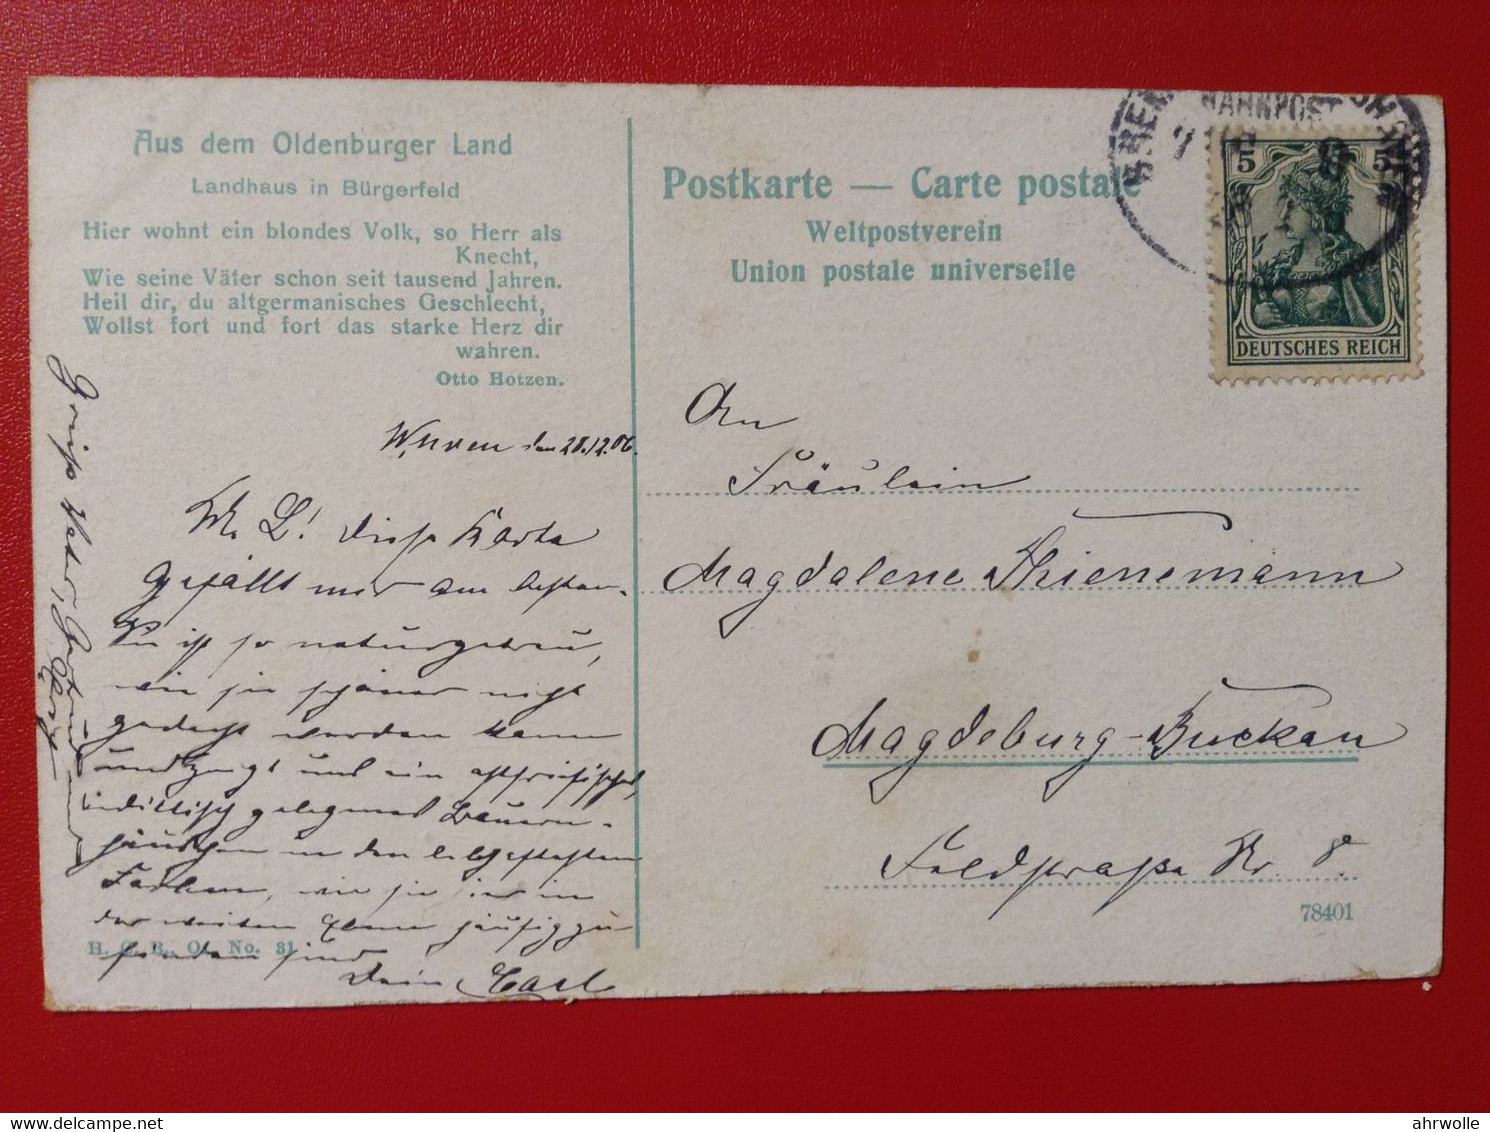 Aus dem Oldenburger Land
Landhaus in Bürgerfeld
Hier wohnt ein blondes Volk, so Herr als
Knecht,
Wie seine Väter schon seit tausend Jahren.
Heil dir, du altgermanisches Geschlecht,
Wollst fort und fort das starke Herz dir
wahren.
Otto Hotzen.
den 28.12.06.
M. L! Diese Karte
gefällt mir am besten.
Sie ist so naturgetreu,
wie sie schöner nicht
gedacht werden kann
und zeigt uns ein ostfriesisches,
idillisch gelegenes Bauern-
häuschen in den lebhaftesten
Farben, wie sie hier in
der weiten Ebene häufig zu
finden sind
Dein Carl
Grüße Vater, Gertrud und
H. O. No. 31
Postkarte — Carte postale
Weltpostverein
Union postale universelle
BAHNPOST
5 5
DEUTSCHES REICH
An
Fräulein
Magdalene Thienemann
Magdeburg-Buckau
Feldstraße Nr. 8.
78401
delcampe.net
ahrwolle